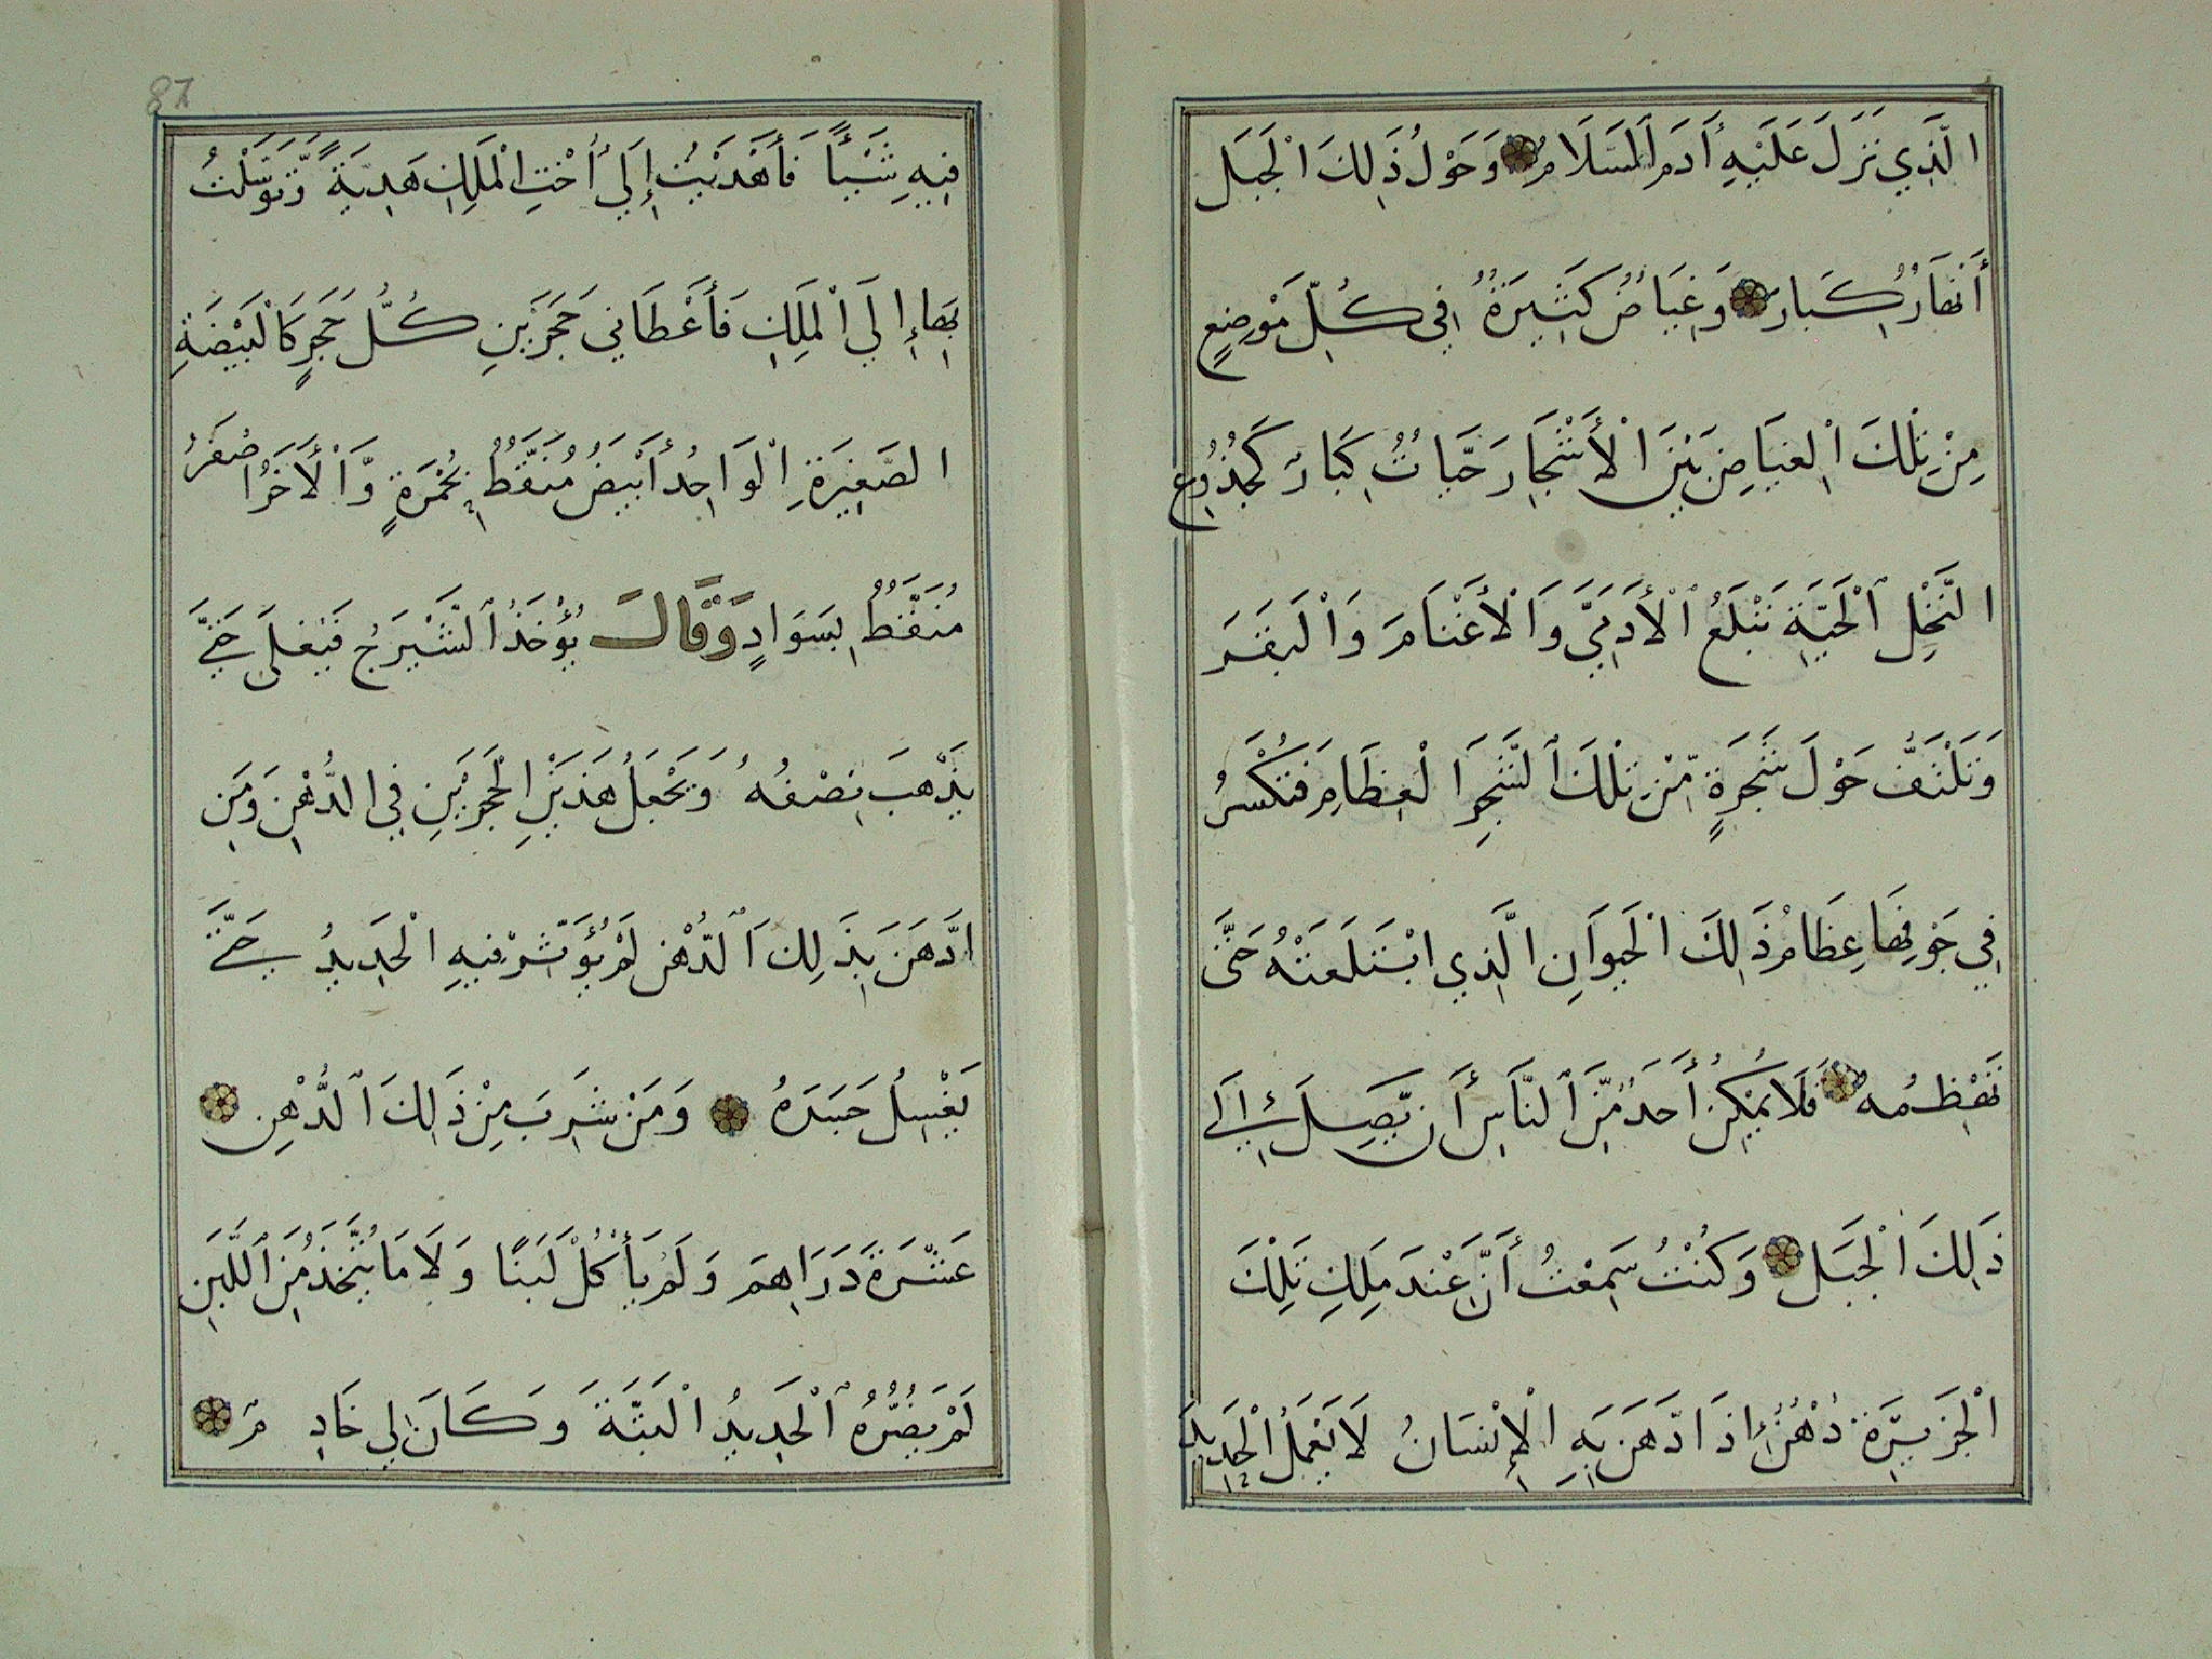 الَّذِي نَزَلَ عَلَيْهِ أَدَمَ السَلَامُ وَحَوْلُ ذَلِكَ الْجَبَل
أَنْهَارُ كِبَارٌ وَغِيَاضٌ كَثِيرَةٌ فِي كُلِّ مَوْضِعٍ
مِنْ تِلْكَ الْغِيَاضِ بَيْنَ الْأَشْجَارِ حَيَّاتُ كِبَارٌ كَجُذُوعِ
النَّخْلِ الْحَيَّةِ تَبْلَعُ الْأَدَمِيَّ وَالْأَغْنَامَ وَالْبَقَرَ
وَتَلْتَفُّ حَوْلَ شَجَرَةٍ مِّنْ تِلْكَ الشَّجَرِ الْعِظَامِ فَتُكْسَرُ
فِي جَوْفِهَا عِظَامُ ذَلِكَ الْحَيَوَانِ الَّذِي ابْتَلَعَتْهُ حَتَّى
تَهْظِمُه فَلَا يُمْكِنُ أَحَدٌ مِّنَ النَّاسِ أَن يَّصِلَ إِلَى
ذَلِكَ الْجَبَلِ وَكُنْتُ سَمِعْتُ أَنَّ عِنْدَ مَلِكِ تِلْكَ
الْجَزِيرَةِ دُهْنٌ إِذَا ادَّهَنَ بِهِ الْإِنْسَانُ لَا يَعْمَلُ الْحَدِيدَ
87
فِيهِ شَيْئًا فَأَهْدَيْتُ إِلَى أُخْتِ الْمَلِكِ هَدِيَّةً وَّتَوَسَّلْتُ
بِهَا إِلَى الْمَلِكِ فَأَعْطَانِي حَجَرَيْنِ كُلُّ حَجَرٍ كَالْبَيْضَةِ
الصَغِيرَةِ الْوَاحِدُ أَبْيَضُ مُنَقَّطٌ بِحُمْرَةٍ وَّالْأَخَرُ اصْفَرُ
مُنَقَّطٌ بِسَوَادٍ وَّقَالَ يُؤْخَذُ الشَّيْرَجُ فَيُغْلَى حَتَّى
يَذْهَبَ نِصْفُهُ وَيُجْعَلُ هَذَيْنِ الْحَجَرَيْنِ فِي الدُّهْنِ وَمَنِ
ادَّهَنَ بِذَلِكَ الدُّهْنِ لَمْ يُؤَثِّرْ فِيهِ الْحَدِيدُ حَتَّى
يَغْسِلُ جَسَدَهُ وَمَنْ شَرِبَ مِنْ ذَلِكَ الدُّهْنِ
عَشَرَةَ دَرَاهِمَ وَلَمْ يَأْكُلْ لَبَنًا وَلَا مَا يُتَّخَذُ مِنَ اللَّبَنِ
لَمْ يَضُرُّهُ الْحَدِيدُ الْبَتَّةَ وَكَانَ لِي خَادِمٌ